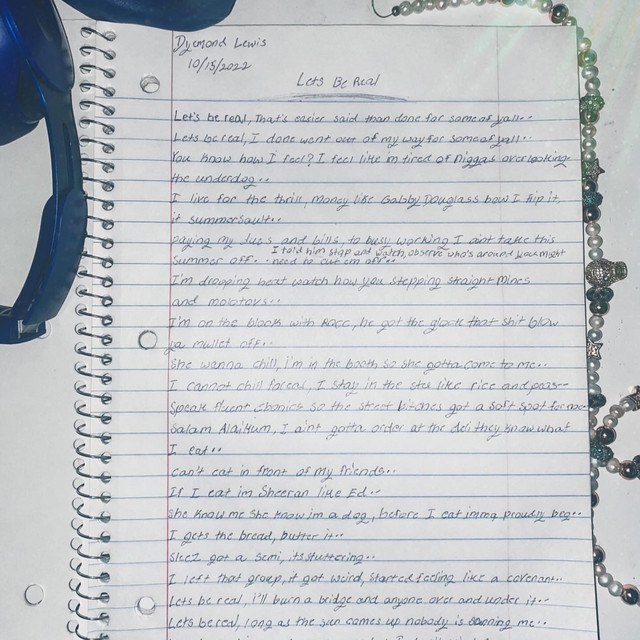 Dyemond Lewis
10/15/2022
Lets Be Real
Let's be real, That's easier said than done for some of yall..
Lets be real, I done went out of my way for some of yall..
You know how I feel? I feel like im tired of niggas overlooking
the underdog..
I live for the thrill, money like Gabby Douglass how I flip it,
it summersault..
paying my dues and bills, to busy working I aint take this
I told him stop and watch, observe who's around you might
summer off.. need to cut em off..
I'm dropping heat watch how you stepping straight mines
and molotovs..
I'm on the block with Rocc, he got the glock that shit blow
ya mullet off..
She wanna chill, i'm in the booth so she gotta come to me..
I cannot chill foreal, I stay in the stu like rice and peas-
Speak fluent ebonics so the street bitches got a soft spot for me
Salam Alaikum, I aint gotta order at the deli they know what
I eat..
can't eat in front of my friends..
If I eat im Sheeran like Ed..
She know me she know im a dog, before I eat imma proudly beg..
I gets the bread, butter it..
Sleez got a semi, its stuttering..
I left that group, it got weird, started feeling like a covenant..
Lets be real, i'll burn a bridge and anyone over and under it..
Lets be real, long as the sun comes up nobody is me..